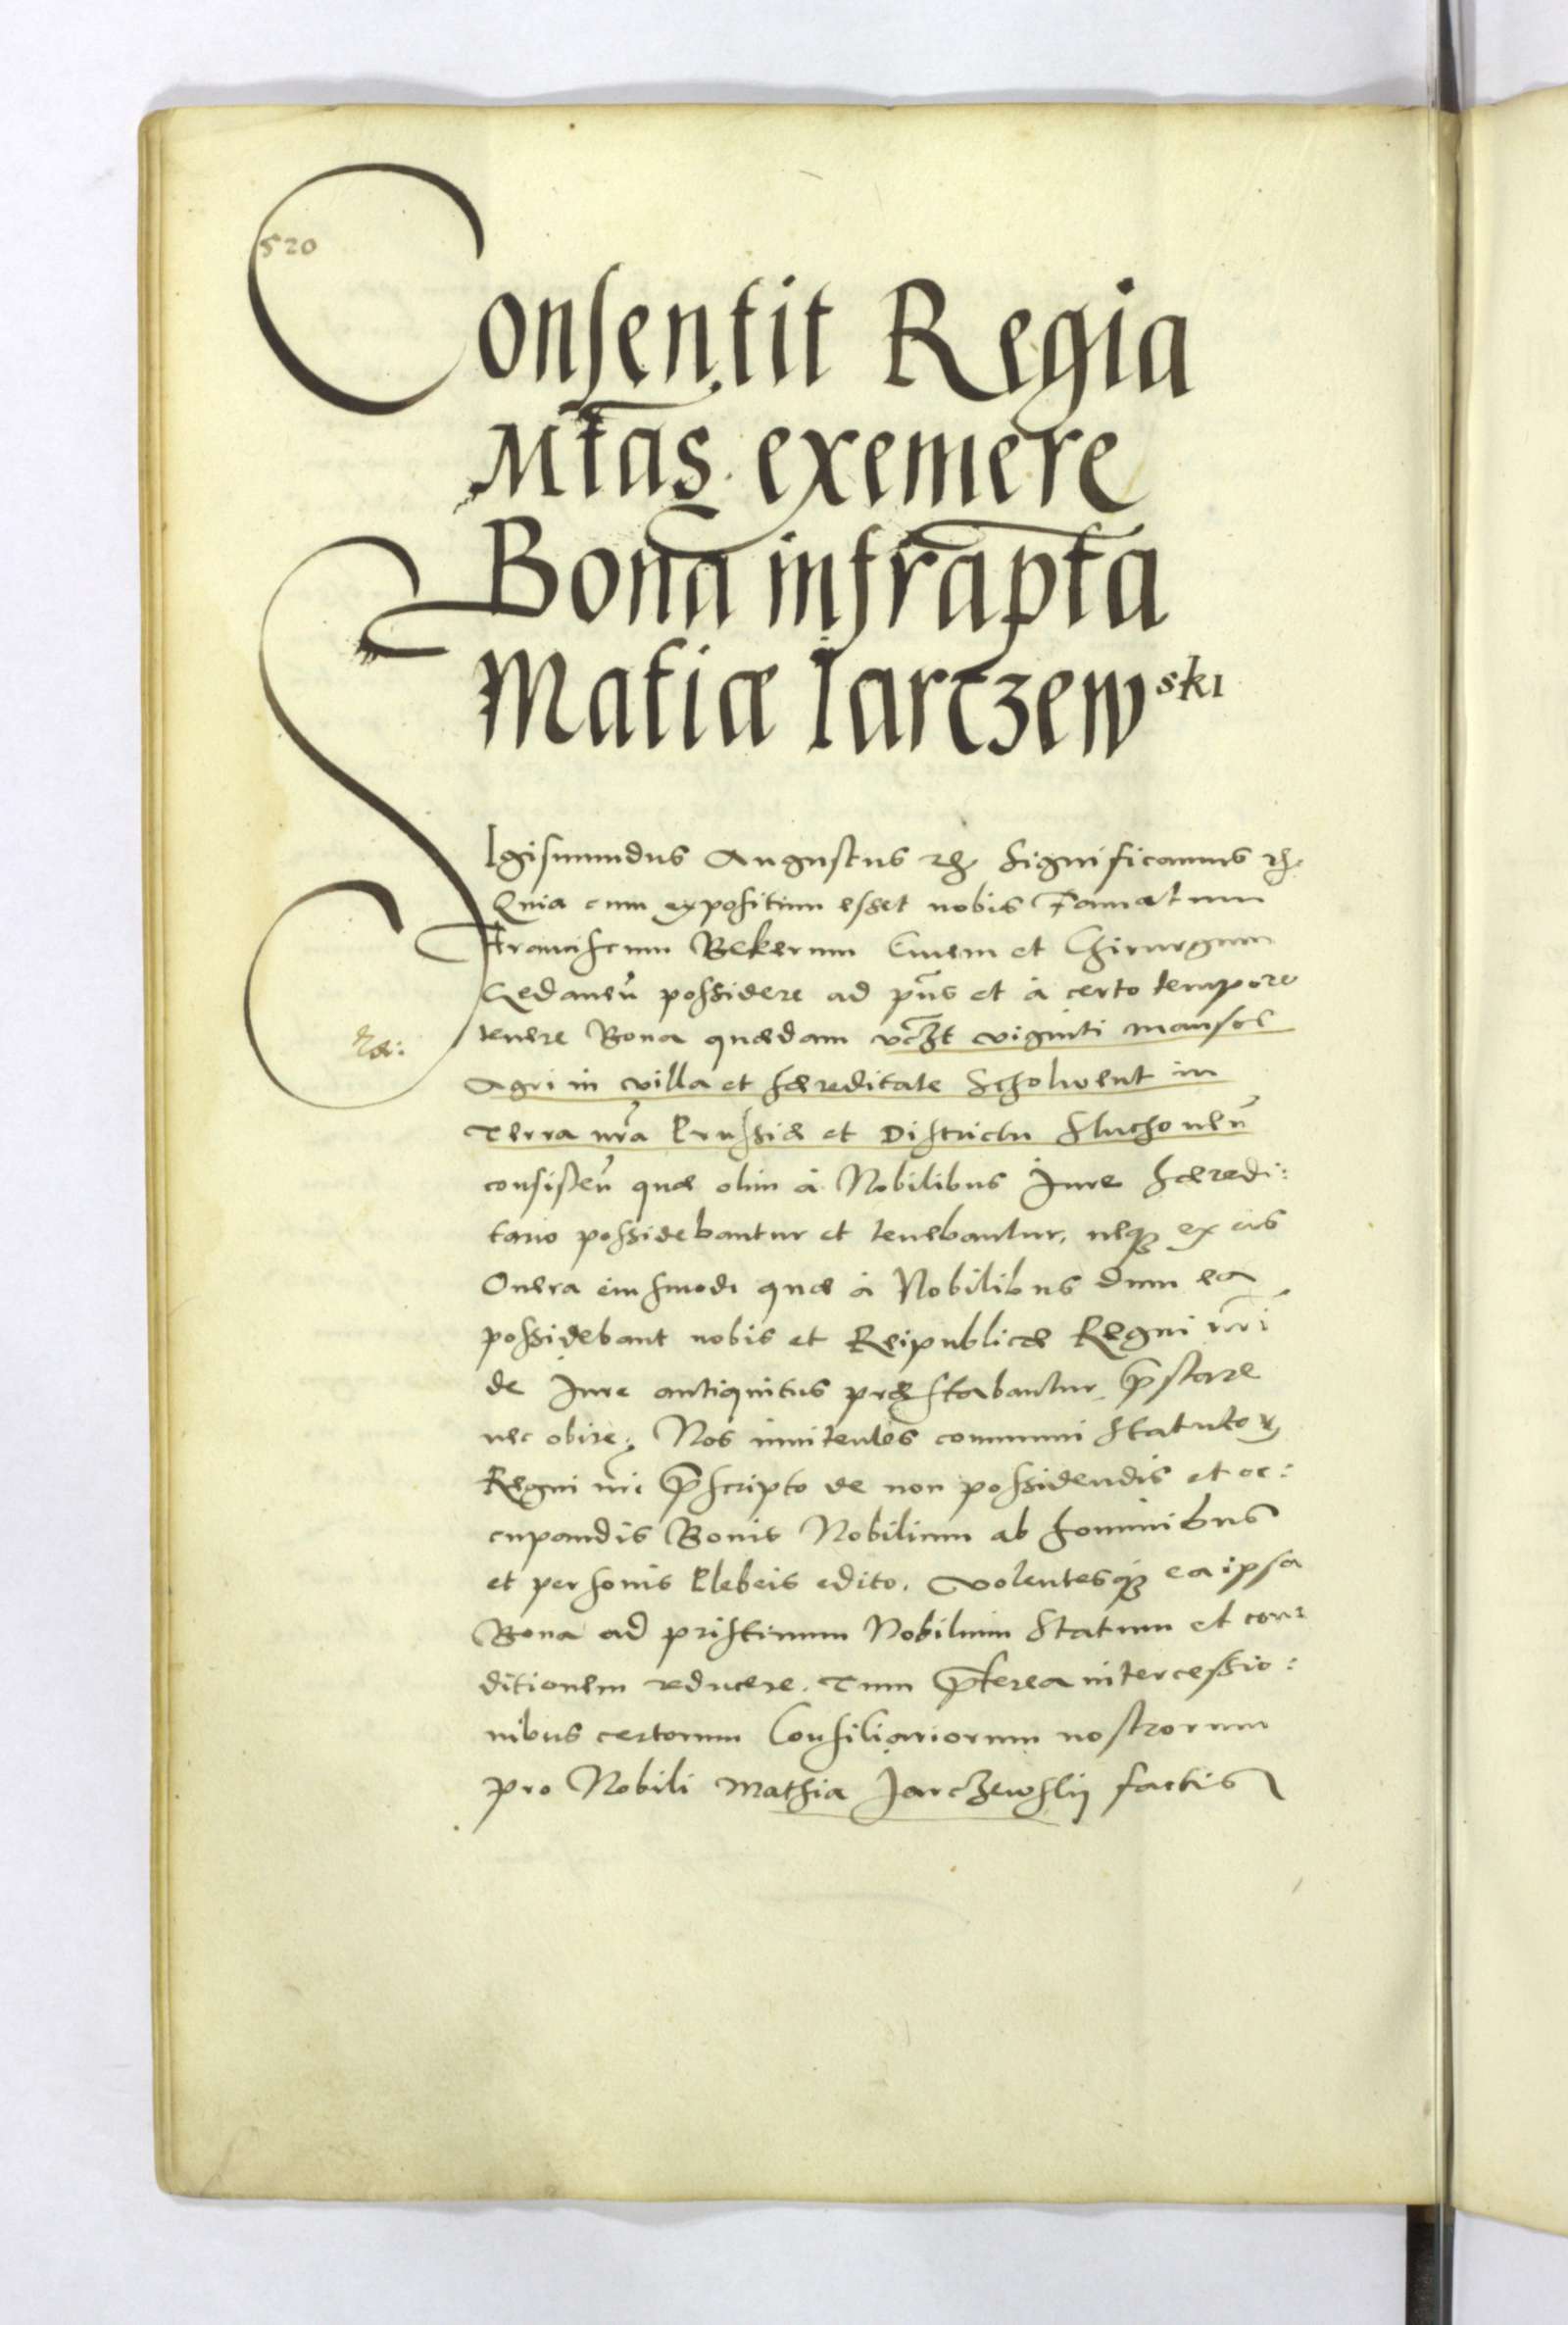 520
Consentit Regia
Mtas exemere
Bona infrapta
Matiæ Iartzewski
SIgismundus Augustus etc Significamus etc
Quia cum expositum esset nobis Famatum
Franciscum Bekerum Civem et Chirurgum
Gedaneñ possidere ad pñs et à certo tempore
tenere Bona quædam vczt viginti mansos
Agri in villa et hæreditate Scholwent in
Terra nrã Prussiæ et Districtu Sluchoueñ
consisteñ quæ olim à Nobilibus Jure hæredi:
tario possidebantur et tenebantur, neqꝫ ex eis
Onera eiusmodi quæ à Nobilibus dum ea
possidebant nobis et Reipublicæ Regni nrĩ
de Jure antiquitus præstabantur p̃stare
nec obire, Nos innitentes communi Statutoꝝ
Regni nrĩ p̃scripto de non possidendis et oc:
cupandis Bonis Nobilium ab hominibus
et personis Plebeis edito. Volentesqꝫ ea ipsa
Bona ad pristinum Nobilium Statum et con:
ditionem reducere. Tum p̃terea intercessio:
nibus certorum Consiliariorum nostrorum
pro Nobili Mathia Jarczewskij factis